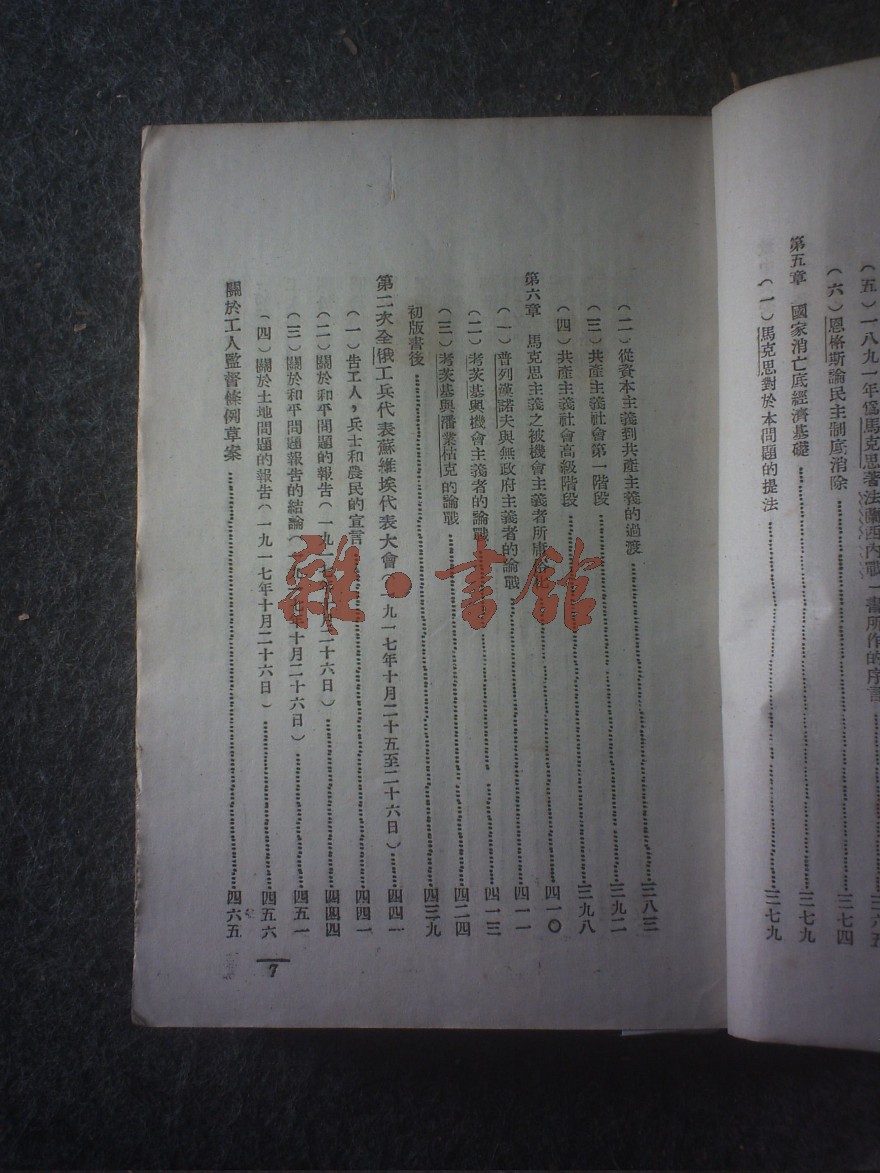 （五）一八九一年爲馬克思著法蘭西內戰一書所作的序言……三六五
（六）恩格斯論民主制底消除……三七四
第五章　國家消亡底經濟基礎……三七九
（一）馬克思對於本問題的提法……三七九
（二）從資本主義到共產主義的過渡……三八三
（三）共產主義社會第一階段……三九二
（四）共產主義社會高級階段……三九八
第六章　馬克思主義之被機會主義者所庸俗化……四一〇
（一）普列漢諾夫與無政府主義者的論戰……四一一
（二）考茨基與機會主義者的論戰……四一三
（三）考茨基與潘業枯克的論戰……四二四
初版書後……四三九
第二次全俄工兵代表蘇維埃代表大會（一九一七年十月二十五至二十六日）……四四一
（一）告工人，兵士和農民的宣言……四四一
（二）關於和平問題的報告（一九一七年十月二十六日）……四四四
（三）關於和平問題報告的結論（一九一七年十月二十六日）……四五一
（四）關於土地問題的報告（一九一七年十月二十六日）……四五六
關於工人監督條例草案……四六五
7
雜·書館